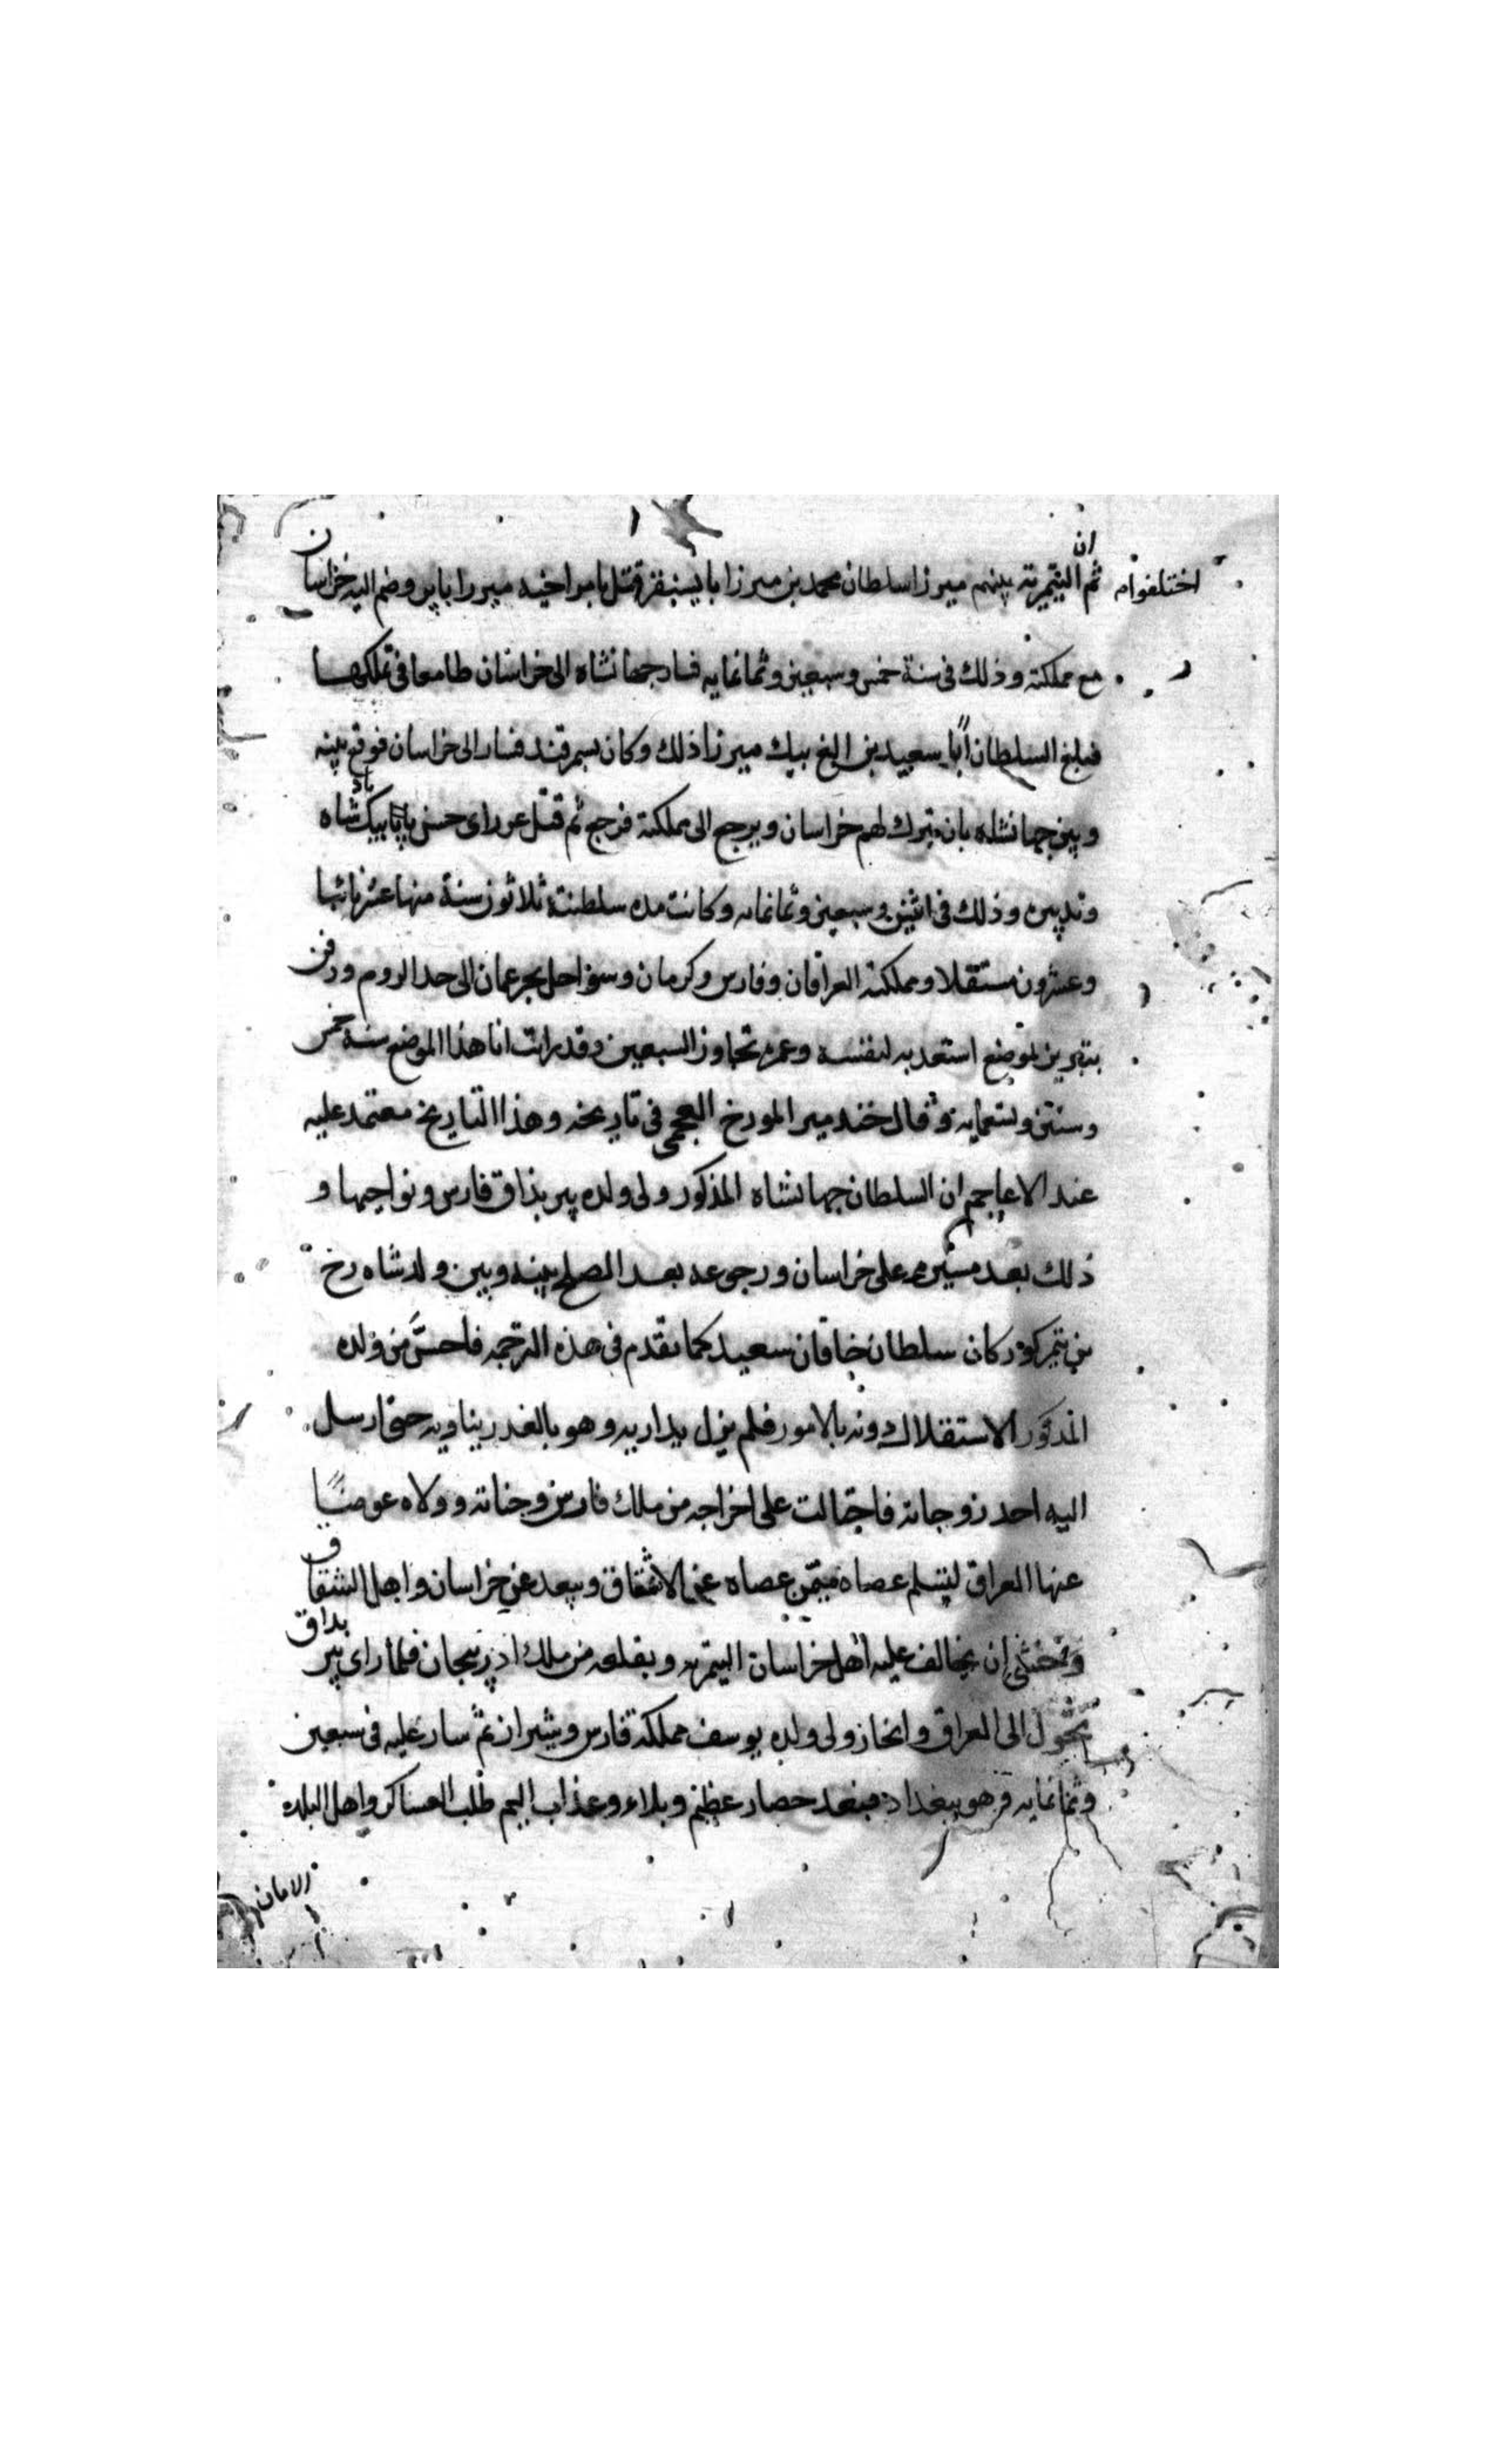 ان
اختلفوام ثم التيمرية بينهم ميرزا سلطان محمد بن ميرزا بايسنقز قتل بامر اخيه ميرزا بابر وضم اليه خراسان
مع مملكته وذلك فى سنة خمس وسبعين وثمانمايه فسار جهانشاه الى خراسان طامعا فى تملكها
فبلغ السلطان ابا سعيد بن الغ بيك ميرزا ذلك وكان بسمرقند فسار الى خراسان فوقع بينه
وبين جهانشاه بان يترك لهم خراسان ويرجع الى مملكته فرجع ثم قتل عن راى حسن بيك شاه
وتدبيره وذلك فى اثنين وسبعين وثمانمايه وكانت مده سلطنته ثلاثون سنة منها عشر نائبا
وعشرون مستقلا ومملكته العراقان وفارس وكرمان وسواحل بحر عمان الى حد الروم ودفن
بتبريز بموضع استعد به لنفسه وعمره تجاوز السبعين وقد رايت انا هذا الموضع سنة خمس
وستين وتسعمايه وقال خندمير المورخ العجمى فى تاريخه وهذا التاريخ معتمد عليه
عند الاعاجم ان السلطان جهانشاه المذكور ولى ولده پير بداق فارس ونواحيها و
ذلك بعد مسيره على خراسان ورجوعه بعد الصلح بينه وبين ولد شاه رخ
بن تيمركور كان سلطان خاقان سعيد كما تقدم فى هذه الترجمه فاحسَّ من ولده
المذكور الاستقلال دونه بالامور فلم يزل يداريه وهو بالغدر يناويه حتى ارسل
اليه احد زوجاته فاحتالت على اخراجه من ملك فارس وجناته وولاه عوضًا
عنها العراق ليتسلم عصاه ممن عصاه عن الاشقاق ويبعد عن خراسان واهل الشقاق
وتخشى ان يخالف عليه اهل خراسان التيمريه ويقلعه من ملك اذربيجان فلما راى پير بداق
تحول الى العراق وانحاز ولى ولده يوسف مملكة فارس وشيراز ثم سار عليه فى سبعين
وثمانمايه وهو ببغداد فبعد حصار عظيم وبلاء وعذاب اليم طلب العساكر واهل البلده
الامان